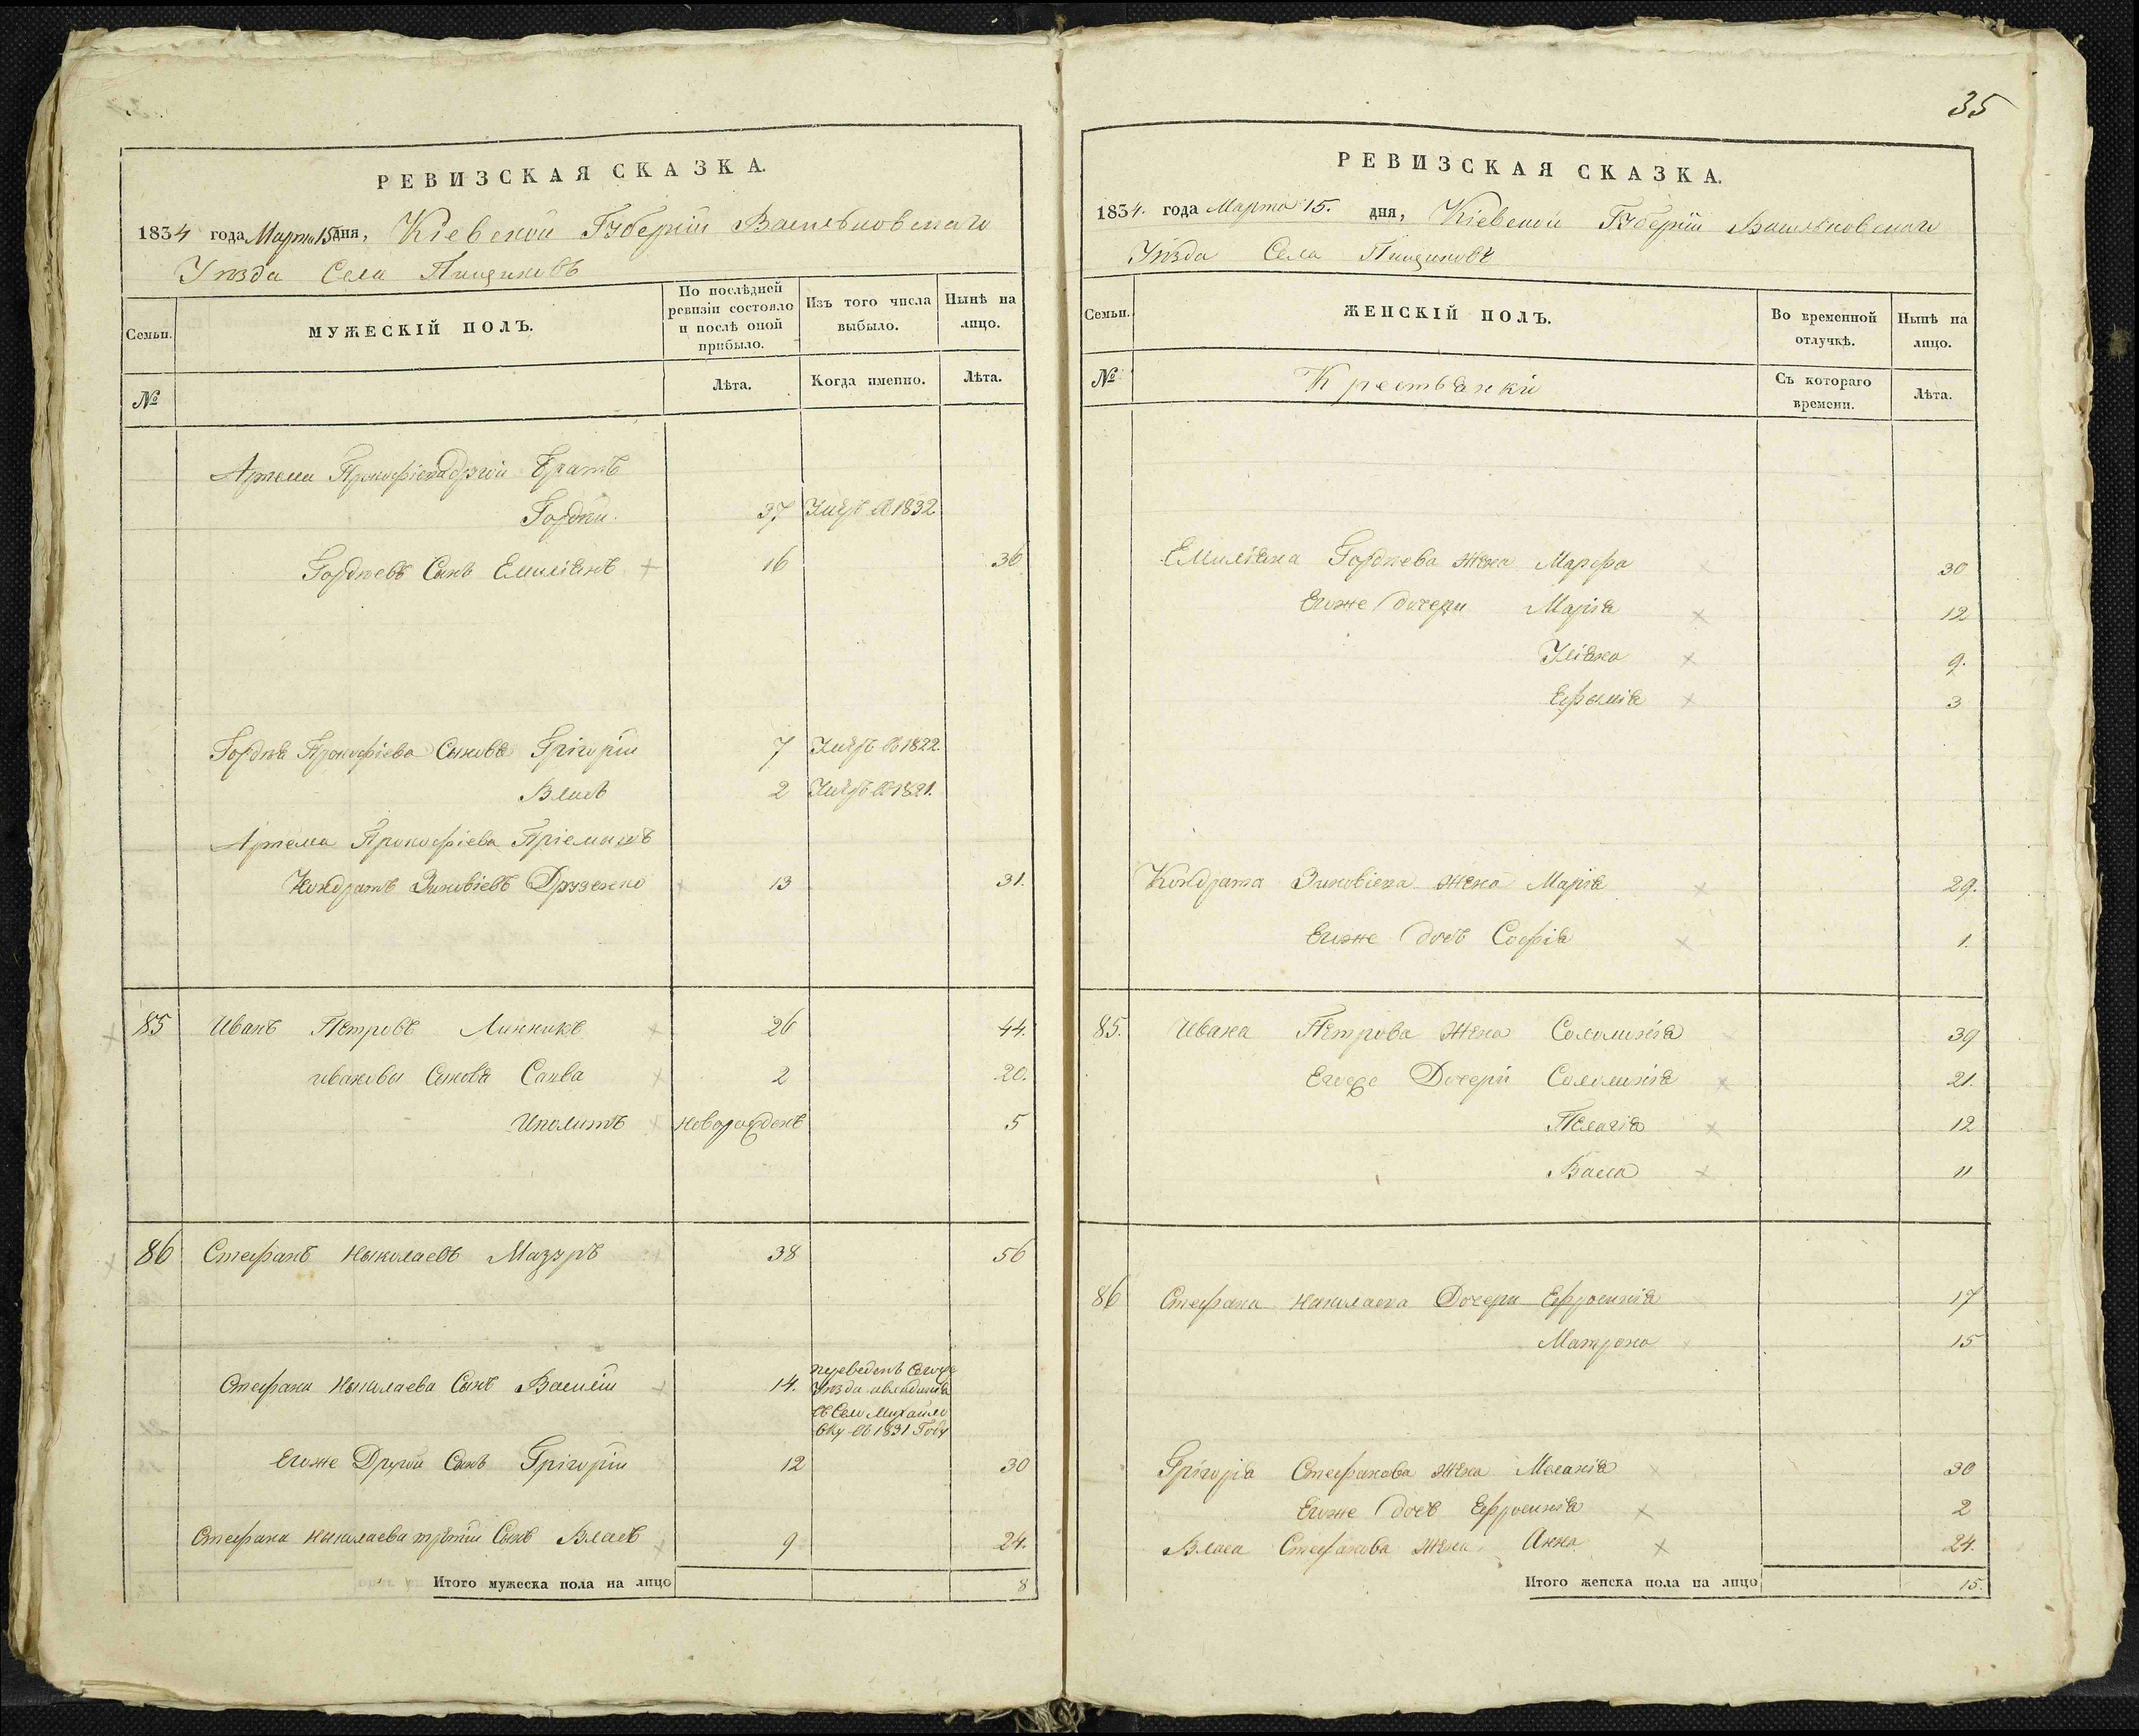 РЕВИЗСКАЯ СКАЗКА.
1834 года Марта 15 дня, Кіевской Губерніи Васильковскаго
Уѣзда Села Пищиковъ
Семьи.
МУЖЕСКІЙ ПОЛЪ.
По послѣдней ревизіи состояло и послѣ оной прибыло.
Изъ того числа выбыло.
Нынѣ на лицо.
№
Лѣта.
Когда именно.
Лѣта.
Артема Прокофіева другой братъ
Гордѣй 37 Умръ въ 1832
Гордѣевъ Сынъ Емиліянъ 16 36
Гордѣя Прокофіева Сыновя Григорій 7 Умръ въ 1822.
Власъ 2 Умръ въ 1821.
Артема Прокофіева Пріемышъ
Кондратъ Зиновіевъ Друзенко 13 31.
85 Иванъ Петровъ Линникъ 26 44.
ивановы Сыновя Савва 2 20.
Иполитъ новорожденъ 5
86 Стефанъ Николаевъ Мазуръ 38 56
Стефана Николаева Сынъ Василій 14. переведенъ Сегоже
Уѣзда
въ Село Михайло
вку въ 1831 Году
Егоже Другой Сынъ Григорій 12 30
Стефана Николаева третій Сынъ Власъ 9 24.
Итого мужеска пола на лицо 8
35
РЕВИЗСКАЯ СКАЗКА.
1834. года Марта 15. дня, Кіевской Губерніи Васильковскаго
Уѣзда Села Пищиковъ
Семьи.
ЖЕНСКІЙ ПОЛЪ.
Во временной отлучкѣ.
Нынѣ на лицо.
№
Крестьянки
Съ котораго времени.
Лѣта.
Емиліяна Гордѣева жена Марфа 30
Егоже дочери Марія 12
Уліяна 9.
Ефимія 3
Кондрата Зиновіева жена Марія 29.
Егоже дочь Софія 1.
85. Ивана Петрова жена Соломинія 39
Егоже Дочери Соломинія 21.
Пелагія 12
Васса 11
86 Стефана Николаева Дочери Ефросинія 17
Матрона 15
Григорія Стефанова жена Меланія 30
Егоже дочь Ефросинія 2
Власа Стефанова жена Анна 24.
Итого женска пола на лицо 15.